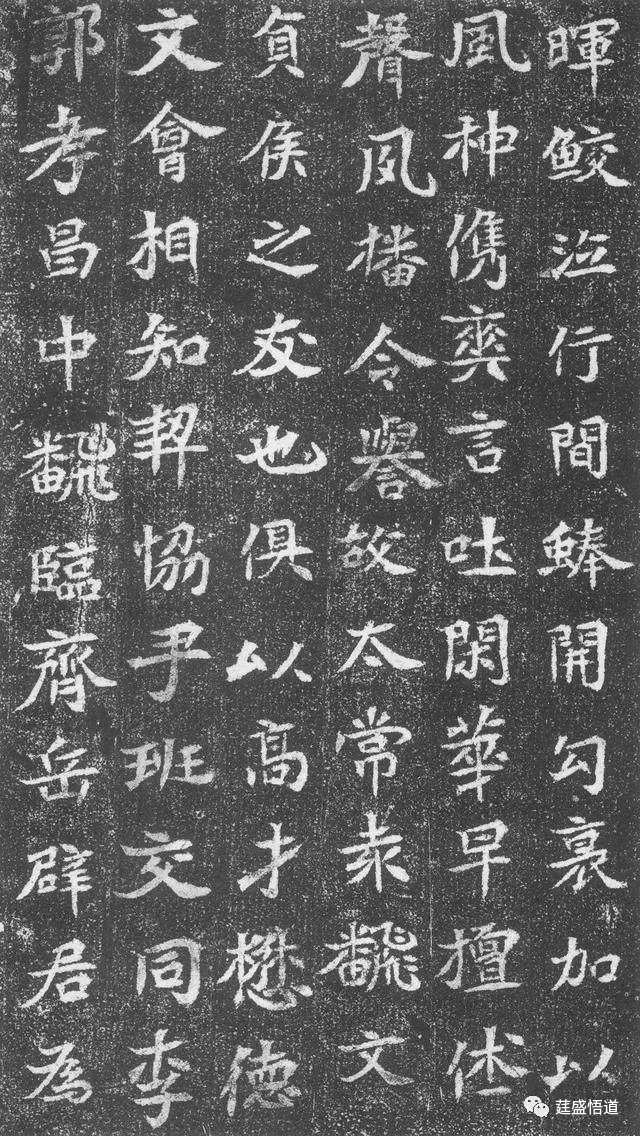 暉鮫泣行間鯚開勾裏加以
風种儁奕言吐閑華早擅佅
聲夙播令譽故太常卿飜文
貞侯之友也俱以高才懋德
文會相知契恊乎班交同李
郭孝昌中飜臨齊岳辟君為
莛盛悟道